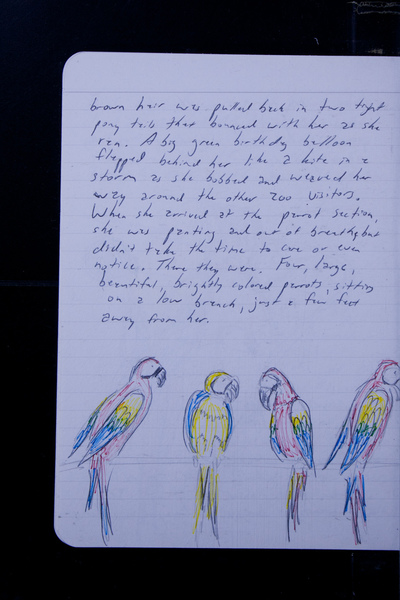 brown hair was pulled back in two tight
pony tails that bounced with her as she
ran. A big green birthday balloon
flapped behind her like a kite in a
storm as she bobbed and weaved her
way around the other zoo visitors.
When she arrived at the parrot section,
she was panting and out of breath, but
didn't take the time to care or even
notice. There they were. Four, large,
beautiful, brightly colored parrots, sitting
on a low branch, just a few feet
away from her.